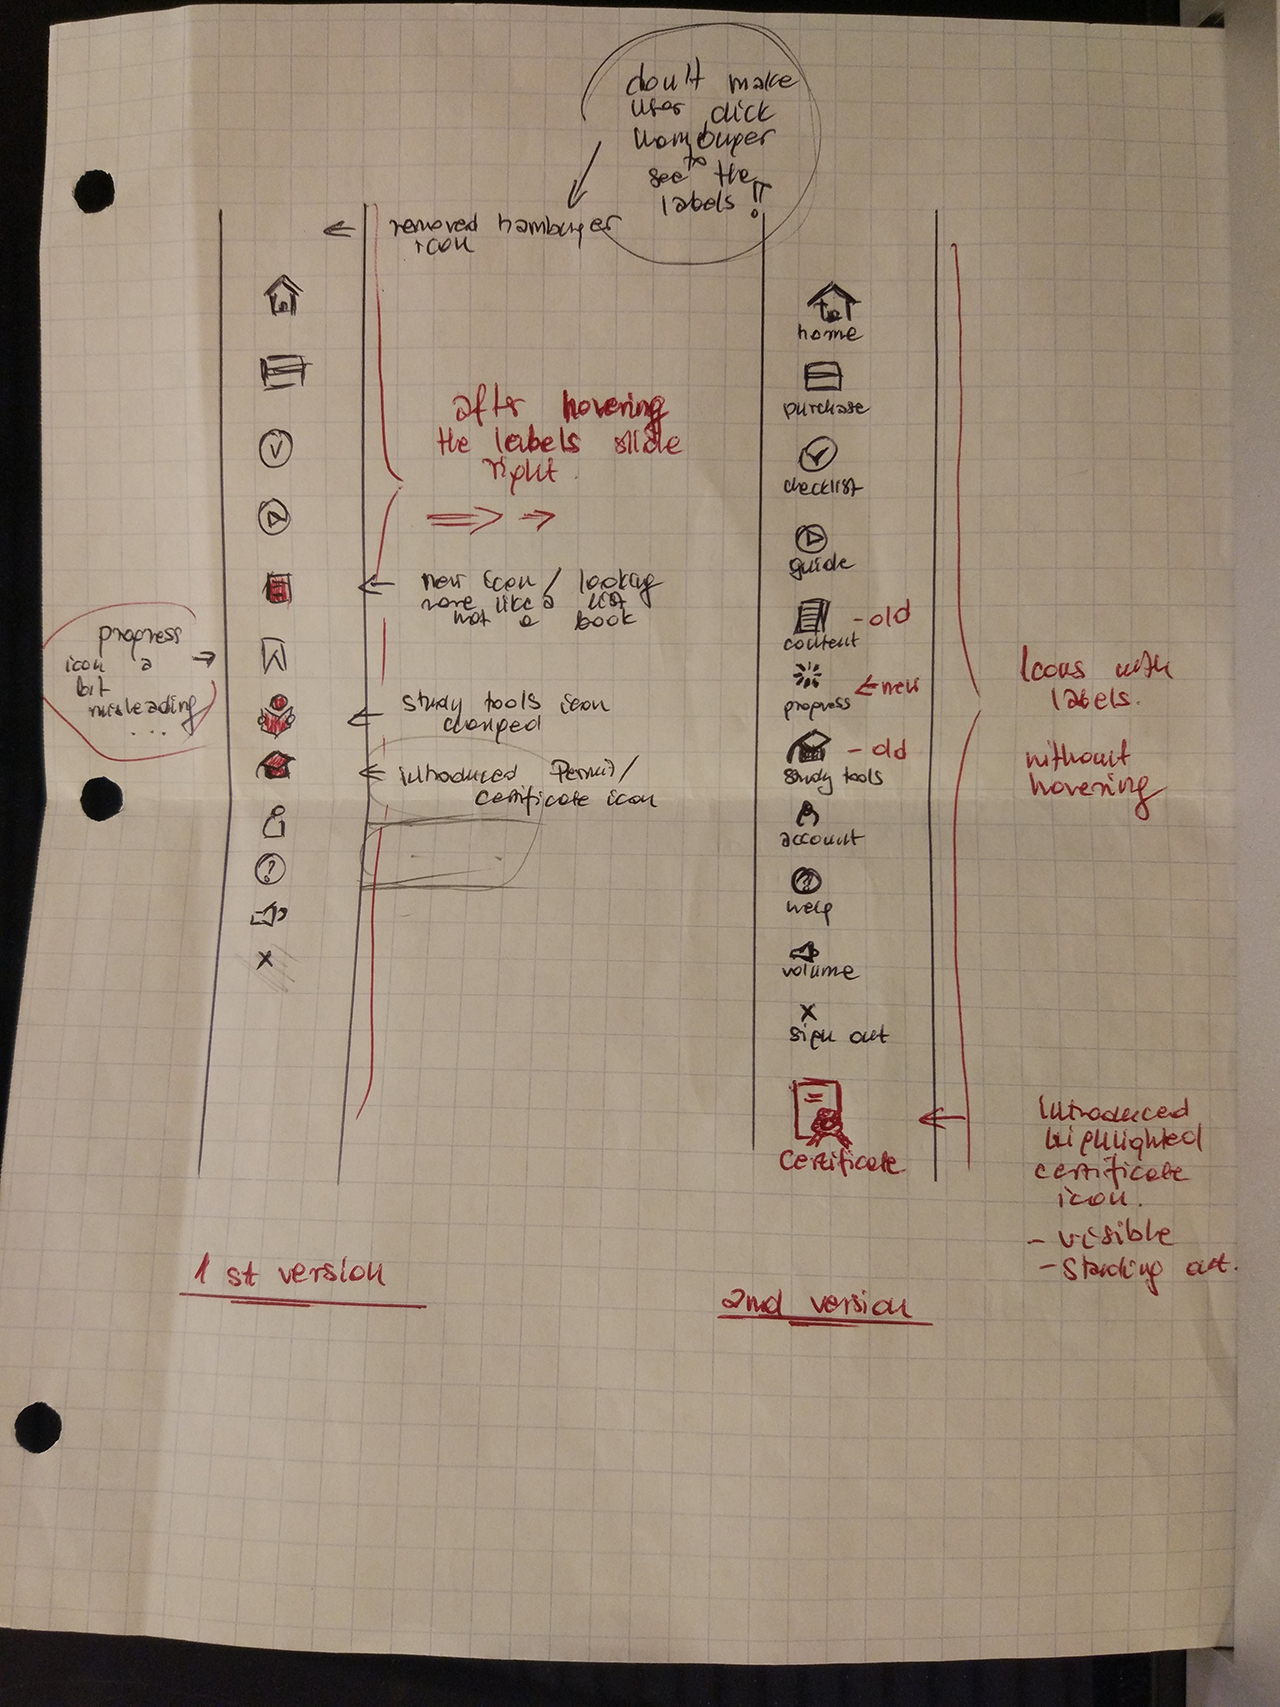 don't make
user click
hamburger
to
see the
labels !!
removed hamburger
icon
after hovering
the labels slide
right.
new icon / looking
more like a list
not a book
progress
icon a
bit
misleading
...
study tools icon
changed
introduced Permit/
certificate icon
?
x
1st version
home
purchase
checklist
guide
content
- old
progress
new
study tools
- old
account
?
help
volume
x
sign out
certificate
2nd version
Icons with
labels.
without
hovering
introduced
highlighted
certificate
icon.
- visible
- standing out.